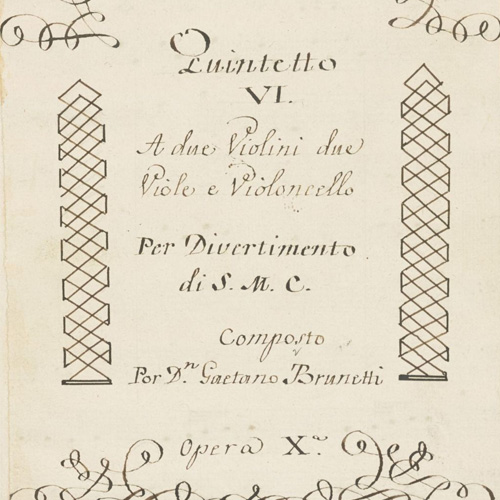 Quintetto
VI.
A due Violini due
Viole e Violoncello
Per Divertimento
di S. M. C.
Composto
Por D.n Gaetano Brunetti
Opera X.a